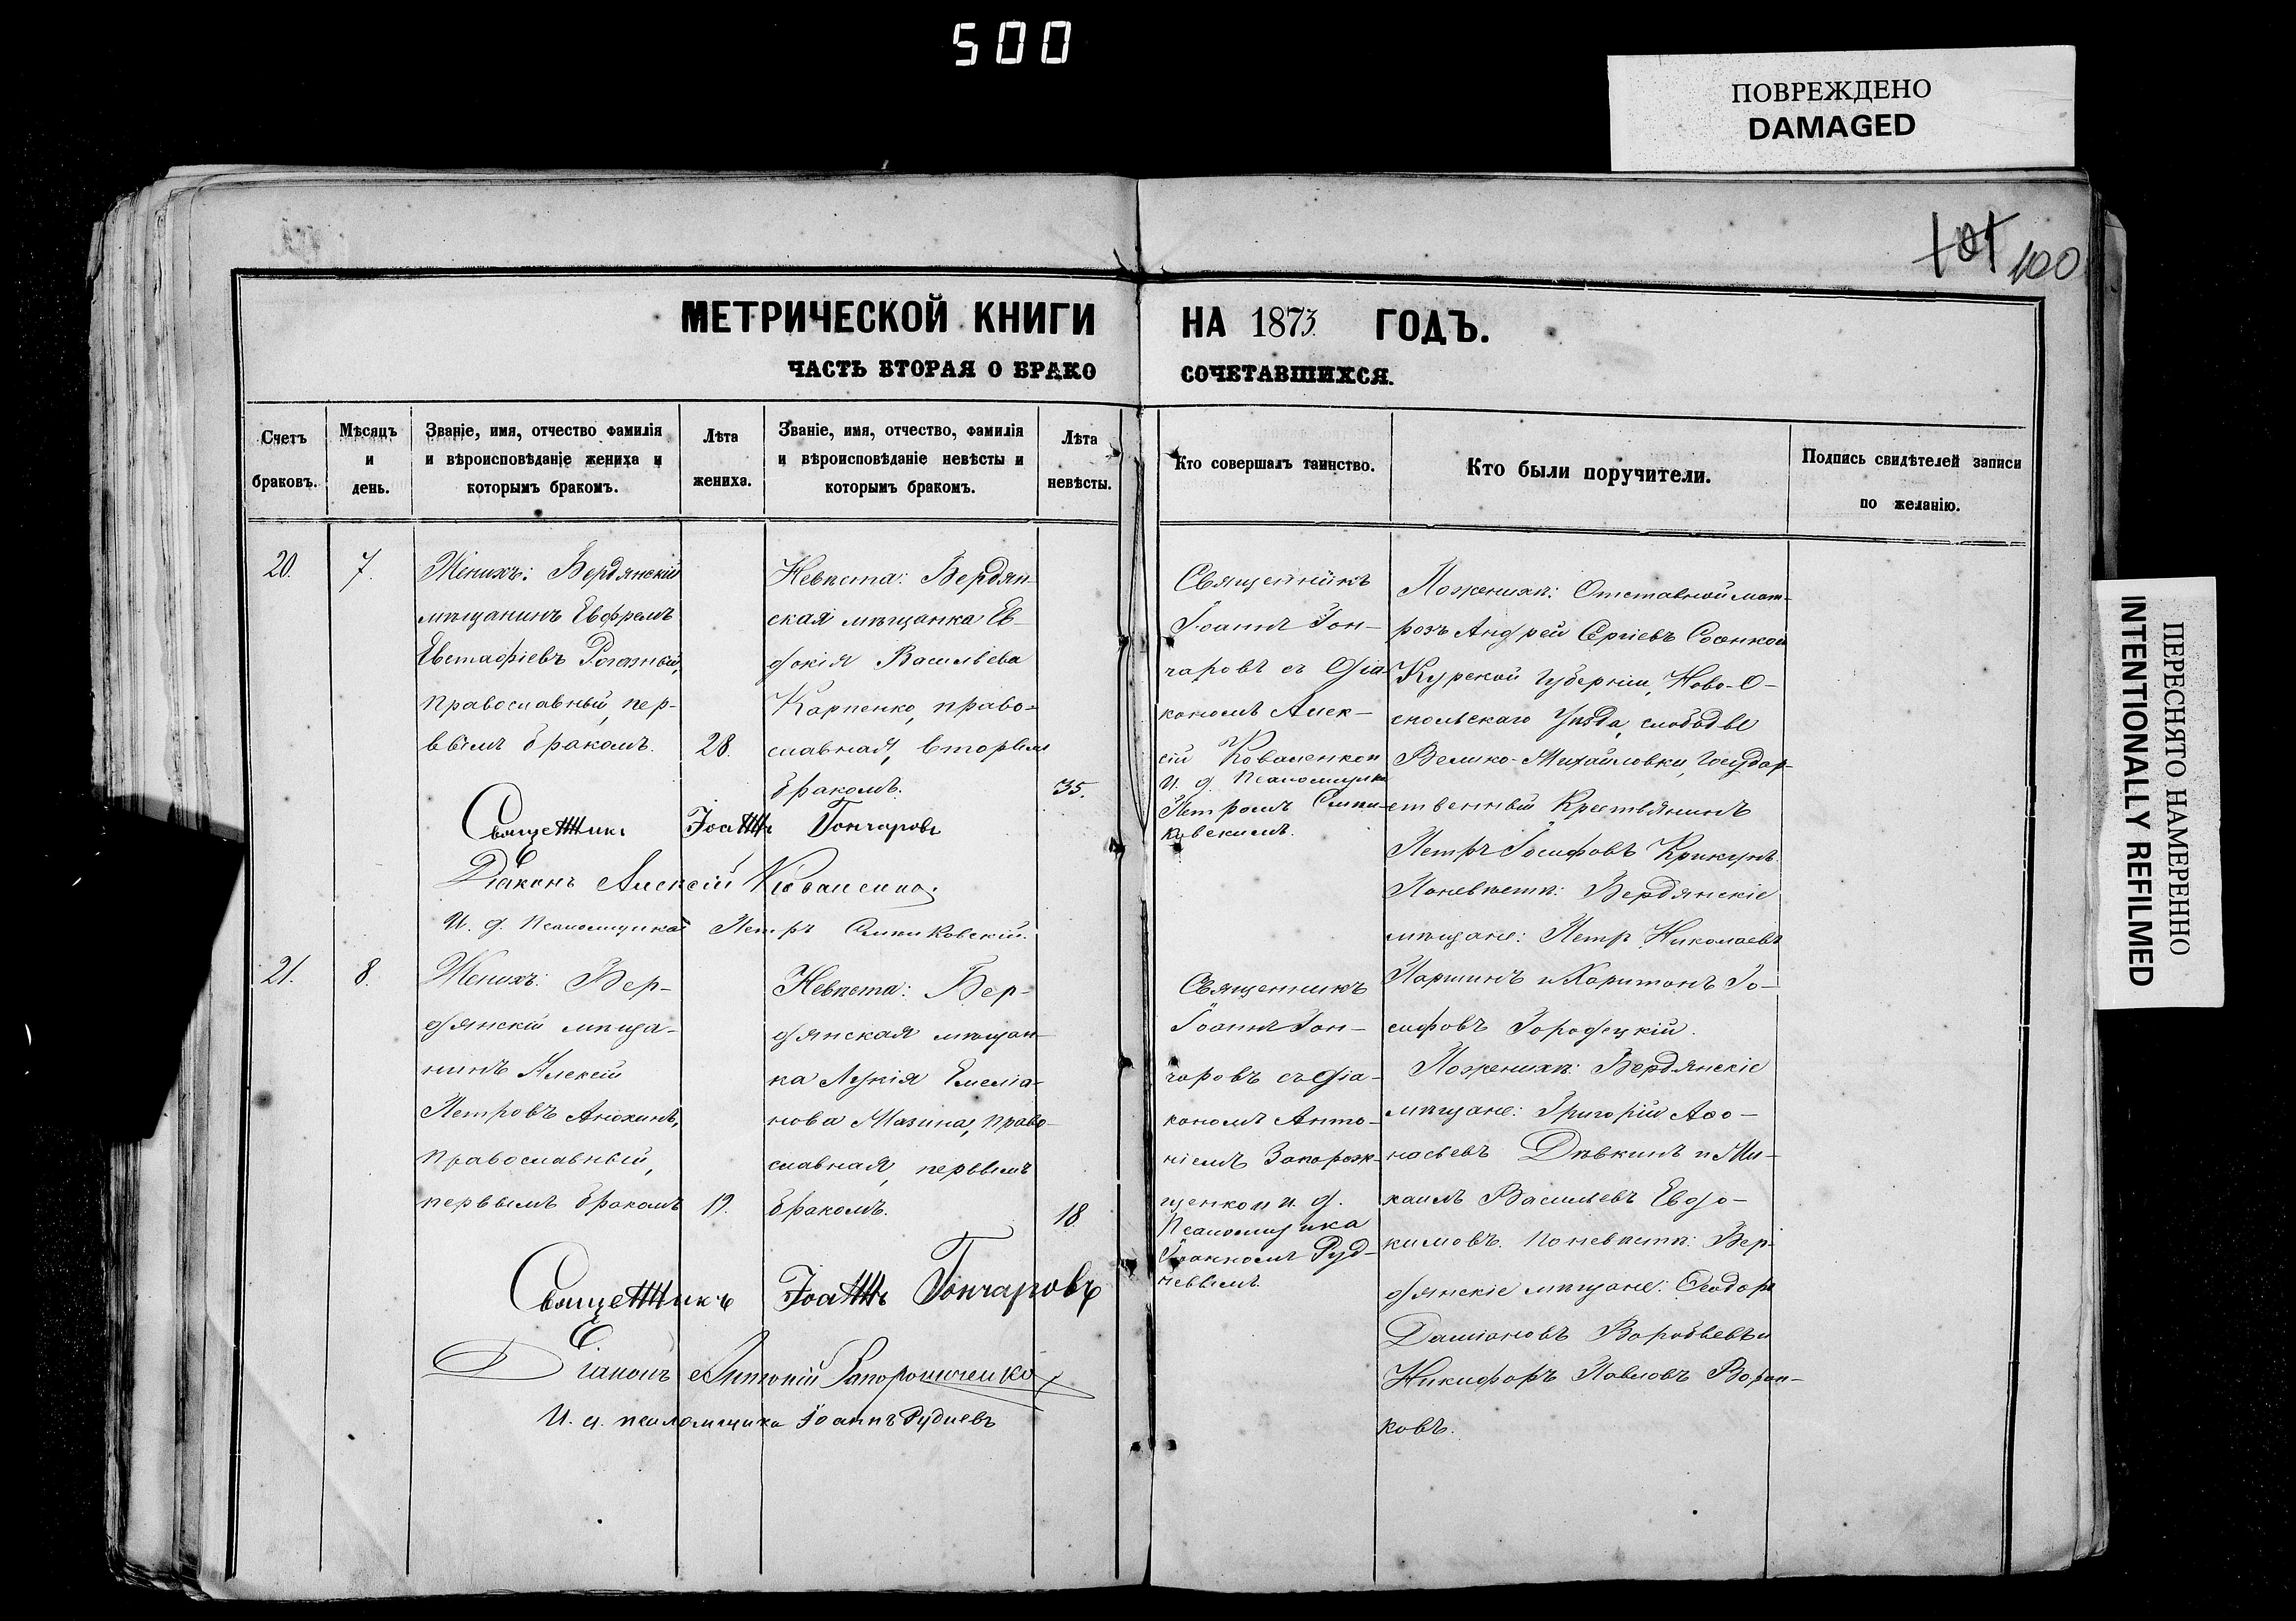 500
ПОВРЕЖДЕНО
DAMAGED
101 100
МЕТРИЧЕСКОЙ КНИГИ НА 1873 ГОДЪ.
ЧАСТЬ ВТОРАЯ О БРАКО СОЧЕТАВШИХСЯ.
Счетъ
браковъ.
Мѣсяцъ
и
день.
Званіе, имя, отчество фамилія
и вѣроисповѣданіе жениха и
которымъ бракомъ.
Лѣта
жениха.
Званіе, имя, отчество, фамилія
и вѣроисповѣданіе невѣсты и
которымъ бракомъ.
Лѣта
невѣсты.
Кто совершалъ таинство.
Кто были поручители.
Подпись свидѣтелей записи
по желанію.
20.
7.
Женихъ: Бердянскій
мѣщанинъ Евфремъ
Евстафіевъ
православный, пер-
вымъ бракомъ.
28.
Невѣста: Бердян-
ская мѣщанка Ев-
докія Васильева
Карпенко, право-
славная, вторымъ
бракомъ.
35.
Священникъ
Іоаннъ Гон-
чаровъ съ діа-
кономъ Алек-
сій Коваленком
И. д. Псаломщика
Петромъ
Поженихѣ: Отставной мат-
розъ Андрей Сергіевъ
Курской губерніи, Ново-О-
скольскаго Уѣзда, слободы
Велико-Михайловки, государ-
ственный Крестьянинъ
Петръ Іосифовъ Крикунъ.
Поневѣстѣ: Бердянскіе
мѣщане: Петръ Николаевъ
Паршинъ и Харитонъ Іо-
сифовъ Городецкій.
Священникъ Іоаннъ Гончаровъ
Діаконъ Алексій Коваленко,
И. д. Псаломщика Петръ
21.
8.
Женихъ: Бер-
дянскій мѣща-
нинъ Алексій
Петровъ Анохинъ,
православный,
первымъ бракомъ
19.
Невѣста: Бер-
дянская мѣщан-
ка Лукія Емеліа-
нова Мазина, право-
славная, первымъ
бракомъ.
18.
Священникъ
Іоаннъ Гон-
чаровъ съ діа-
кономъ Анто-
ніемъ Запорож-
ценком и. д.
Псаломщика
Іоанномъ Руд-
невымъ.
Поженихѣ: Бердянскіе
мѣщане: Григорій Афо-
насьевъ Дѣвкинъ и Ми-
хаилъ Васильевъ Евдо-
кимовъ. поневѣстѣ: Бер-
дянскіе мѣщане: Феодоръ
Даміановъ Воробьевъ и
Никифоръ Павловъ Ворон-
ковъ.
Священникъ Іоаннъ Гончаровъ
Діаконъ Антоній
И. д. псаломщика Іоаннъ Рудневъ
ПЕРЕСНЯТО НАМЕРЕННО
INTENTIONALLY REFILMED